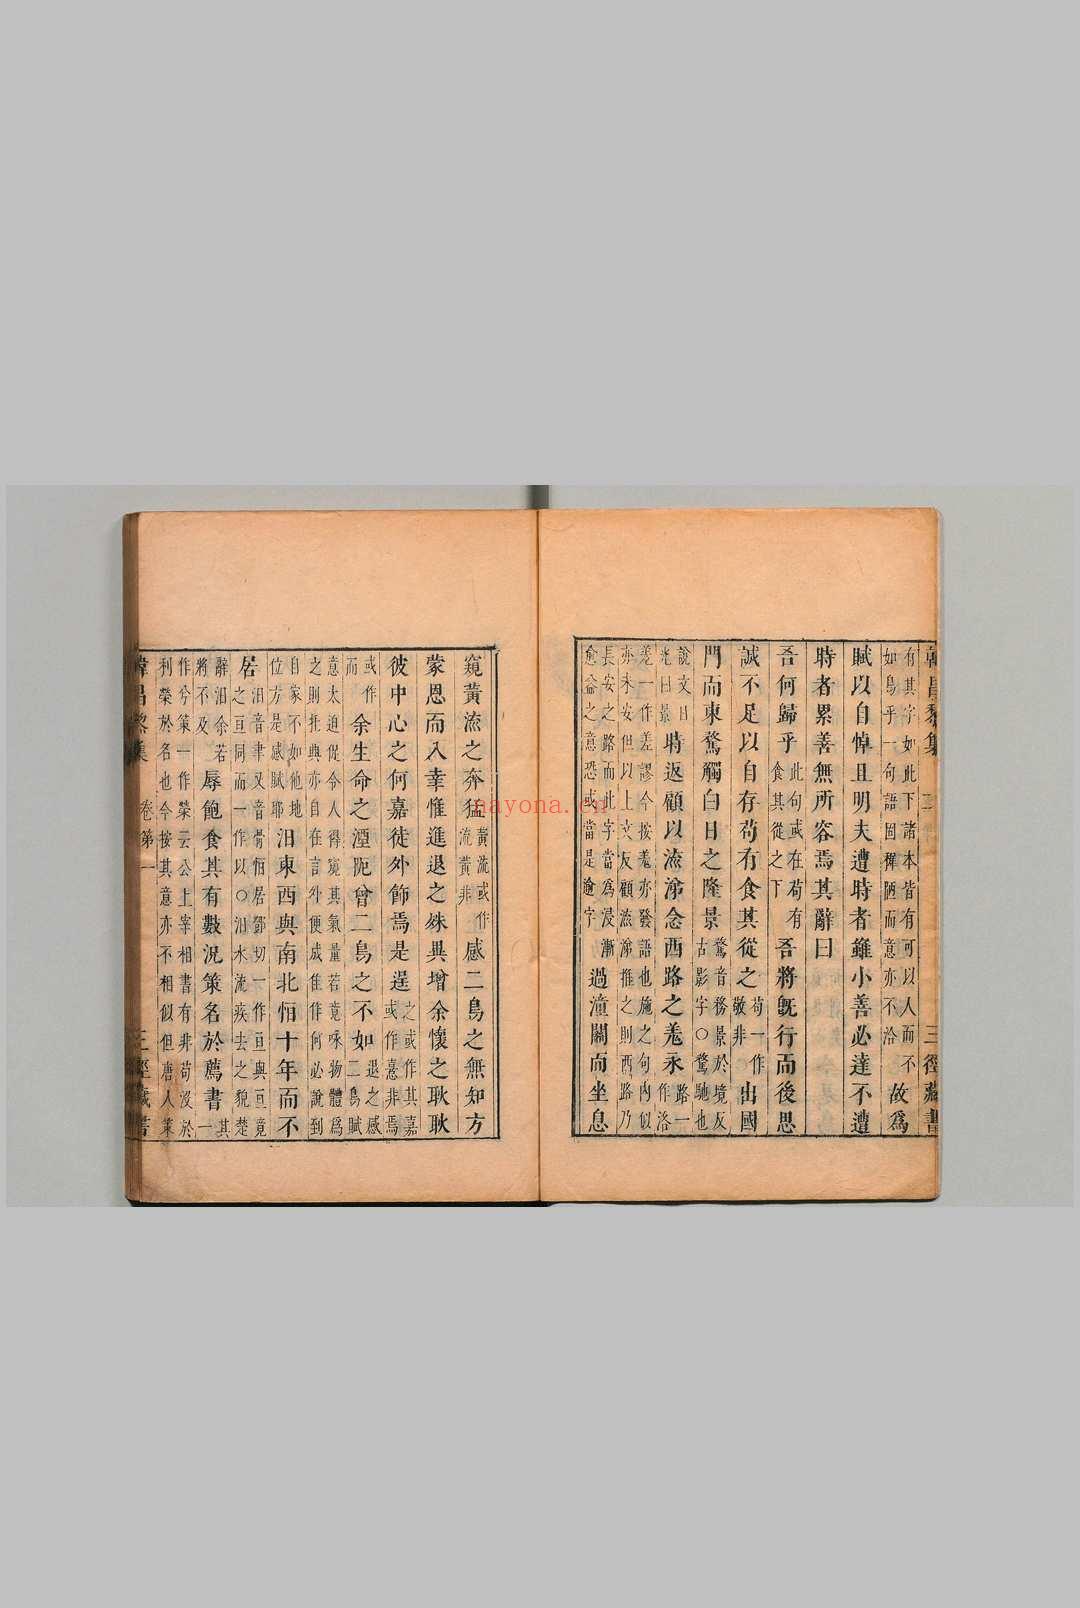 有其字如此下諸本皆有可以人而不
如鳥乎一句語固穉陋而意亦不洽
故爲
賦以自悼且明夫遭時者雖小善必達不遭
時者累善無所容焉其辭曰
吾何歸乎
此句或在苟有
食其從之下
吾將旣行而後思
誠不足以自存苟有食其從之
苟一作
敬非
出國
門而東騖觸白日之隆景
騖音務景於境反
古影字○騖馳也
說文日
光曰景
時返顧以流涕念西路之羗永
路一
作洛
羗一作差謬今按羗亦發語也施之句內似
亦未安但以上文友顧流涕推之則西路乃
長安之路而此字當爲浸漸
愈益之意恐或當是逾字
過潼關而坐息
窺黃流之奔猛
黃流或作
流黃非
感二鳥之無知方
蒙恩而入幸惟進退之殊異增余懷之耿耿
彼中心之何嘉徒外飾焉是逞
之或作其嘉
或作憙非焉
或作
而
余生命之湮阨曾二鳥之不如
退之感
二鳥賦
意太迫促令人得窺其氣量若竟咏物體爲
之則托興亦自在言外便成佳作何必說到
自家不如他地
位方是感賦耶
汨東西與南北恒十年而不
居
汨音聿又音骨恒居鄧切一作亘與亘竟
之亘同而一作以○汨水流疾去之貌楚
辭汨余若
將不及
辱飽食其有數況策名於薦書
一
作兮策一作榮云公上宰相書有非苟沒於
利榮於名也今按其意亦不相似但唐人策
韓昌黎集
卷第一
三徑藏書
nayona.cn